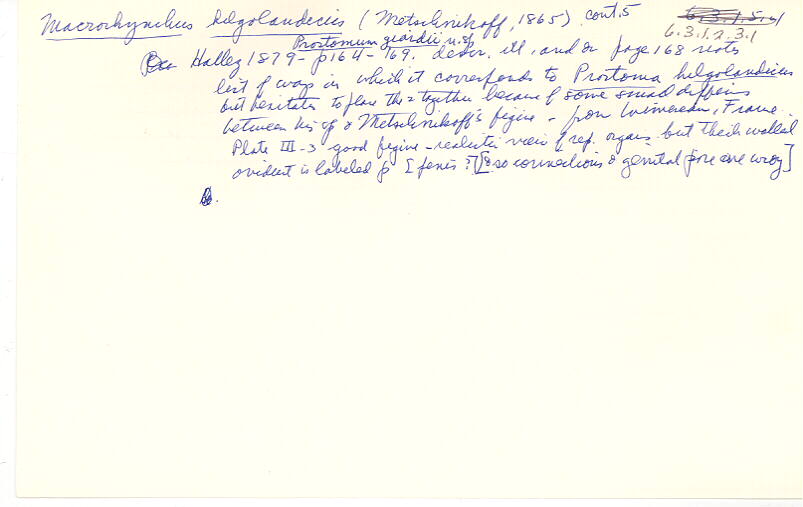 Macrorhynchus helgolandicus (Metschnikoff, 1865) cont.5
6.3.1.5.1
6.3.1.2.3.1
Prostomum giardii n.sp.
Hallez 1879 - p164 - 169. descr. ill. and on page 168 notes
list of ways in which it corresponds to Prostoma helgolandicus
but hesitates to place the 2 together because of some small differences
between his sp & Metschnikoff's figure - from Wimereux, France.
Plate III-3 good figure - realistic view of rep. organs but thick walled
oviduct is labeled p [penis?] [& so connections & genital pore are wrong]